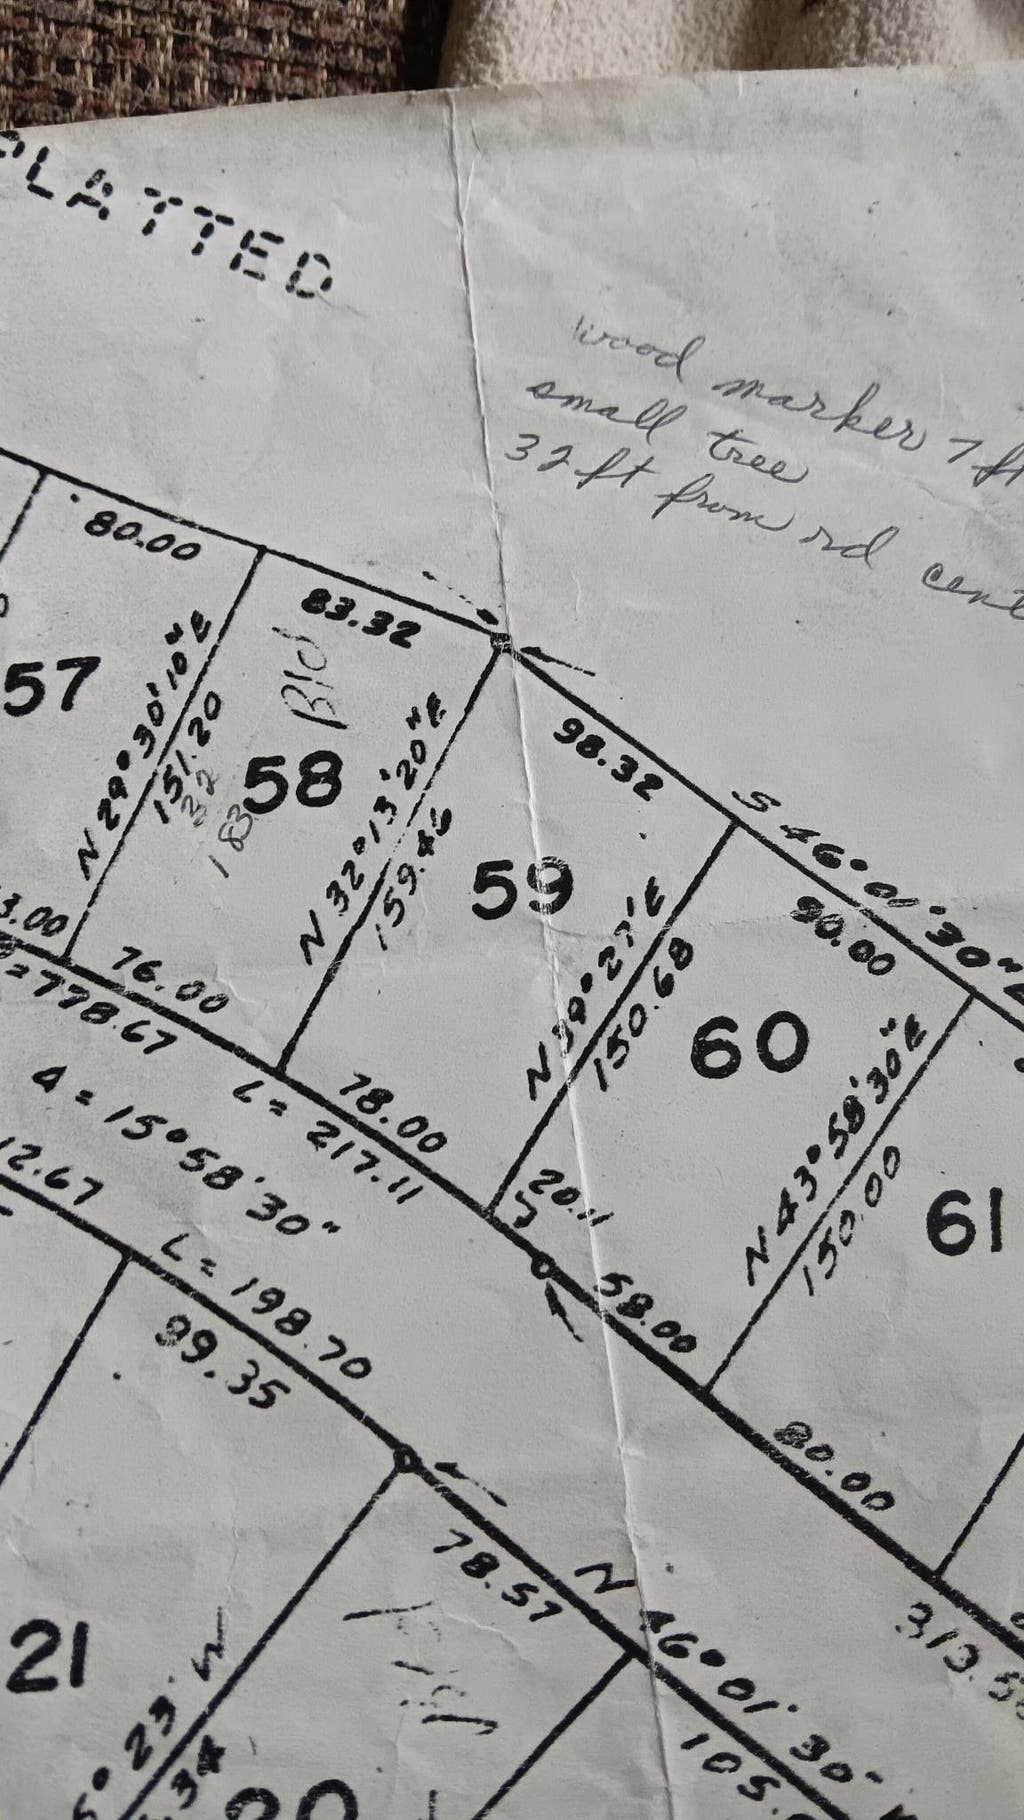 PLATTED
wood marker 7 ft
small tree
32 ft from rd cent
80.00
83.32
Bld
57
N 29° 30' 10" E
151.20
32
183
58
N 32° 13' 20" E
159.46
98.32
S 46° 01' 30" E
59
N 39° 27' E
150.68
80.00
60
N 43° 58' 30" E
150.00
61
3.00
76.00
=778.67
L = 217.11
78.00
20.11
58.00
80.00
313.5
Δ = 15° 58' 30"
12.67
L = 198.70
99.35
78.57
N 46° 01' 30" W
105.
21
5° 23' W
.34
20